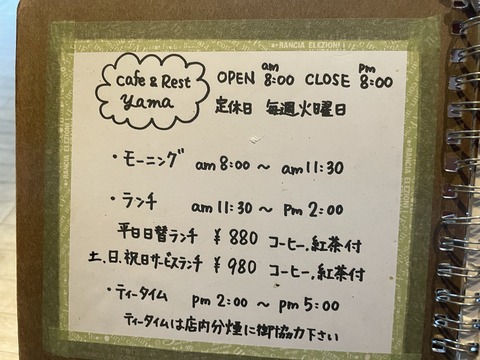 Cafe & Rest
Yama
OPEN am 8:00 CLOSE pm 8:00
定休日 毎週火曜日
・モーニング am 8:00 〜 am 11:30
・ランチ am 11:30 〜 pm 2:00
平日日替ランチ ¥880 コーヒー、紅茶付
土、日、祝日サービスランチ ¥980 コーヒー、紅茶付
・ティータイム pm 2:00 〜 pm 5:00
ティータイムは店内分煙に御協力下さい
RANCIA ELEZIONI
RANCIA ELEZIONI